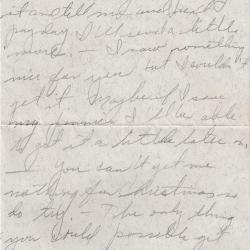 it and tell me and next
payday I'll send a little
more. — I saw something
nice for you but I couldn't
get it. Maybe if I save
my pennies I'll be able
to get it a little later on.
— You can't get me
nothing for Christmas so
do try. The only thing
you could possible get